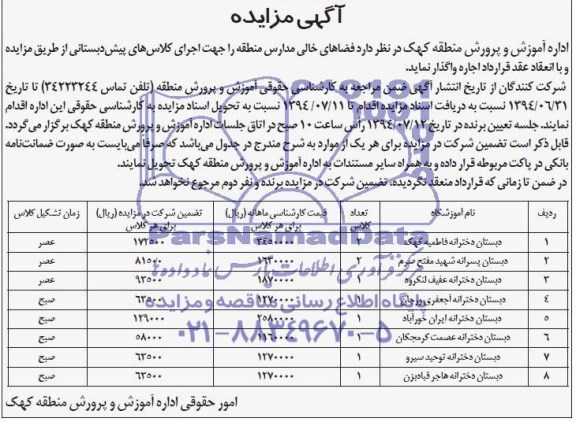 آگهی مزایده
اداره آموزش و پرورش منطقه کهک در نظر دارد فضاهای خالی مدارس منطقه را جهت اجرای کلاس‌های پیش‌دبستانی از طریق مزایده
و با انعقاد عقد قرارداد اجاره واگذار نماید.
شرکت کنندگان از تاریخ انتشار آگهی ضمن مراجعه به کارشناسی حقوقی آموزش و پرورش منطقه (تلفن تماس ۳۴۲۲۳۲۴۴) تا تاریخ
۱۳۹۴/۰۶/۳۱ نسبت به دریافت اسناد مزایده اقدام تا ۱۳۹۴/۰۷/۱۱ نسبت به تحویل اسناد مزایده به کارشناسی حقوقی این اداره اقدام
نمایند. جلسه تعیین برنده در تاریخ ۱۳۹۴/۰۷/۱۲ راس ساعت ۱۰ صبح در اتاق جلسات اداره آموزش و پرورش منطقه کهک برگزار می‌گردد.
قابل ذکر است تضمین شرکت در مزایده برای هر یک از موارد به شرح مندرج در جدول می‌باشد که صرفاً می‌بایست به صورت ضمانت‌نامه
بانکی در پاکت مربوطه قرار داده و به همراه سایر مستندات به اداره آموزش و پرورش منطقه کهک تحویل نمایند.
در ضمن تا زمانی که قرارداد منعقد نگردیده، تضمین شرکت در مزایده برنده و نفر دوم مرجوع نخواهد شد.
ردیف نام آموزشگاه تعداد کلاس قیمت کارشناسی ماهانه (ریال) برای هر کلاس تضمین شرکت در مزایده (ریال) برای هر کلاس زمان تشکیل کلاس
۱ دبستان دخترانه فاطمیه کهک ۲ ۳۴۵۰۰۰۰ ۱۷۲۵۰۰ عصر
۲ دبستان پسرانه شهید مفتح صرم ۲ ۱۶۳۰۰۰۰ ۸۱۵۰۰ عصر
۳ دبستان دخترانه عفیف لنگرود ۱ ۱۸۷۰۰۰۰ ۹۳۵۰۰ عصر
۴ دبستان دخترانه آجعفری ورجان ۱ ۱۲۷۰۰۰۰ ۶۳۵۰۰ صبح
۵ دبستان دخترانه ایران خورآباد ۱ ۲۵۸۰۰۰۰ ۱۲۹۰۰۰ صبح
۶ دبستان دخترانه عصمت کرمجگان ۱ ۱۱۶۰۰۰۰ ۵۸۰۰۰ صبح
۷ دبستان دخترانه توحید سیرو ۱ ۱۲۷۰۰۰۰ ۶۳۵۰۰ صبح
۸ دبستان دخترانه هاجر قبادبزن ۱ ۱۲۷۰۰۰۰ ۶۳۵۰۰ صبح
امور حقوقی اداره آموزش و پرورش منطقه کهک
ParsNamadData
مرکز فرآوری اطلاعات پارس نماد داده‌ها
پایگاه اطلاع رسانی مناقصه و مزایده
۰۲۱-۸۸۳۴۹۶۷۰-۵